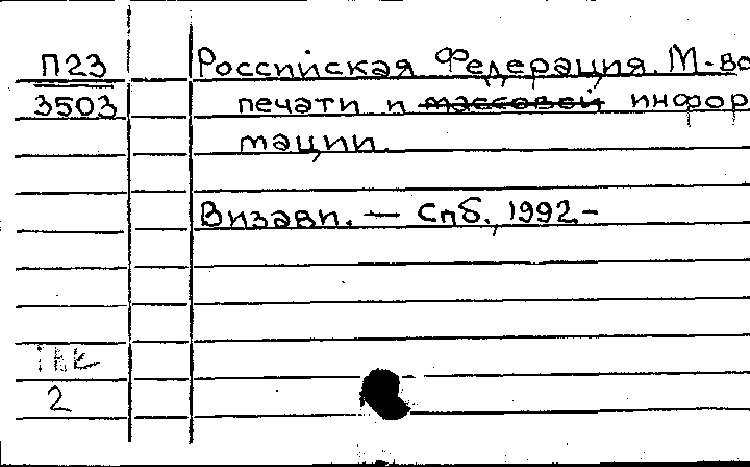 П23
3503
Российская Федерация. М-во
печати и массовой инфор
мации.
Визави. — Спб., 1992 –
2